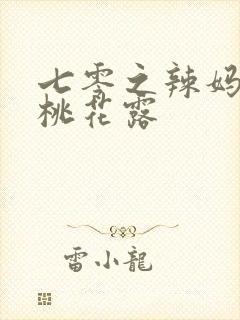 七零之辣妈
桃花露
雷小龍